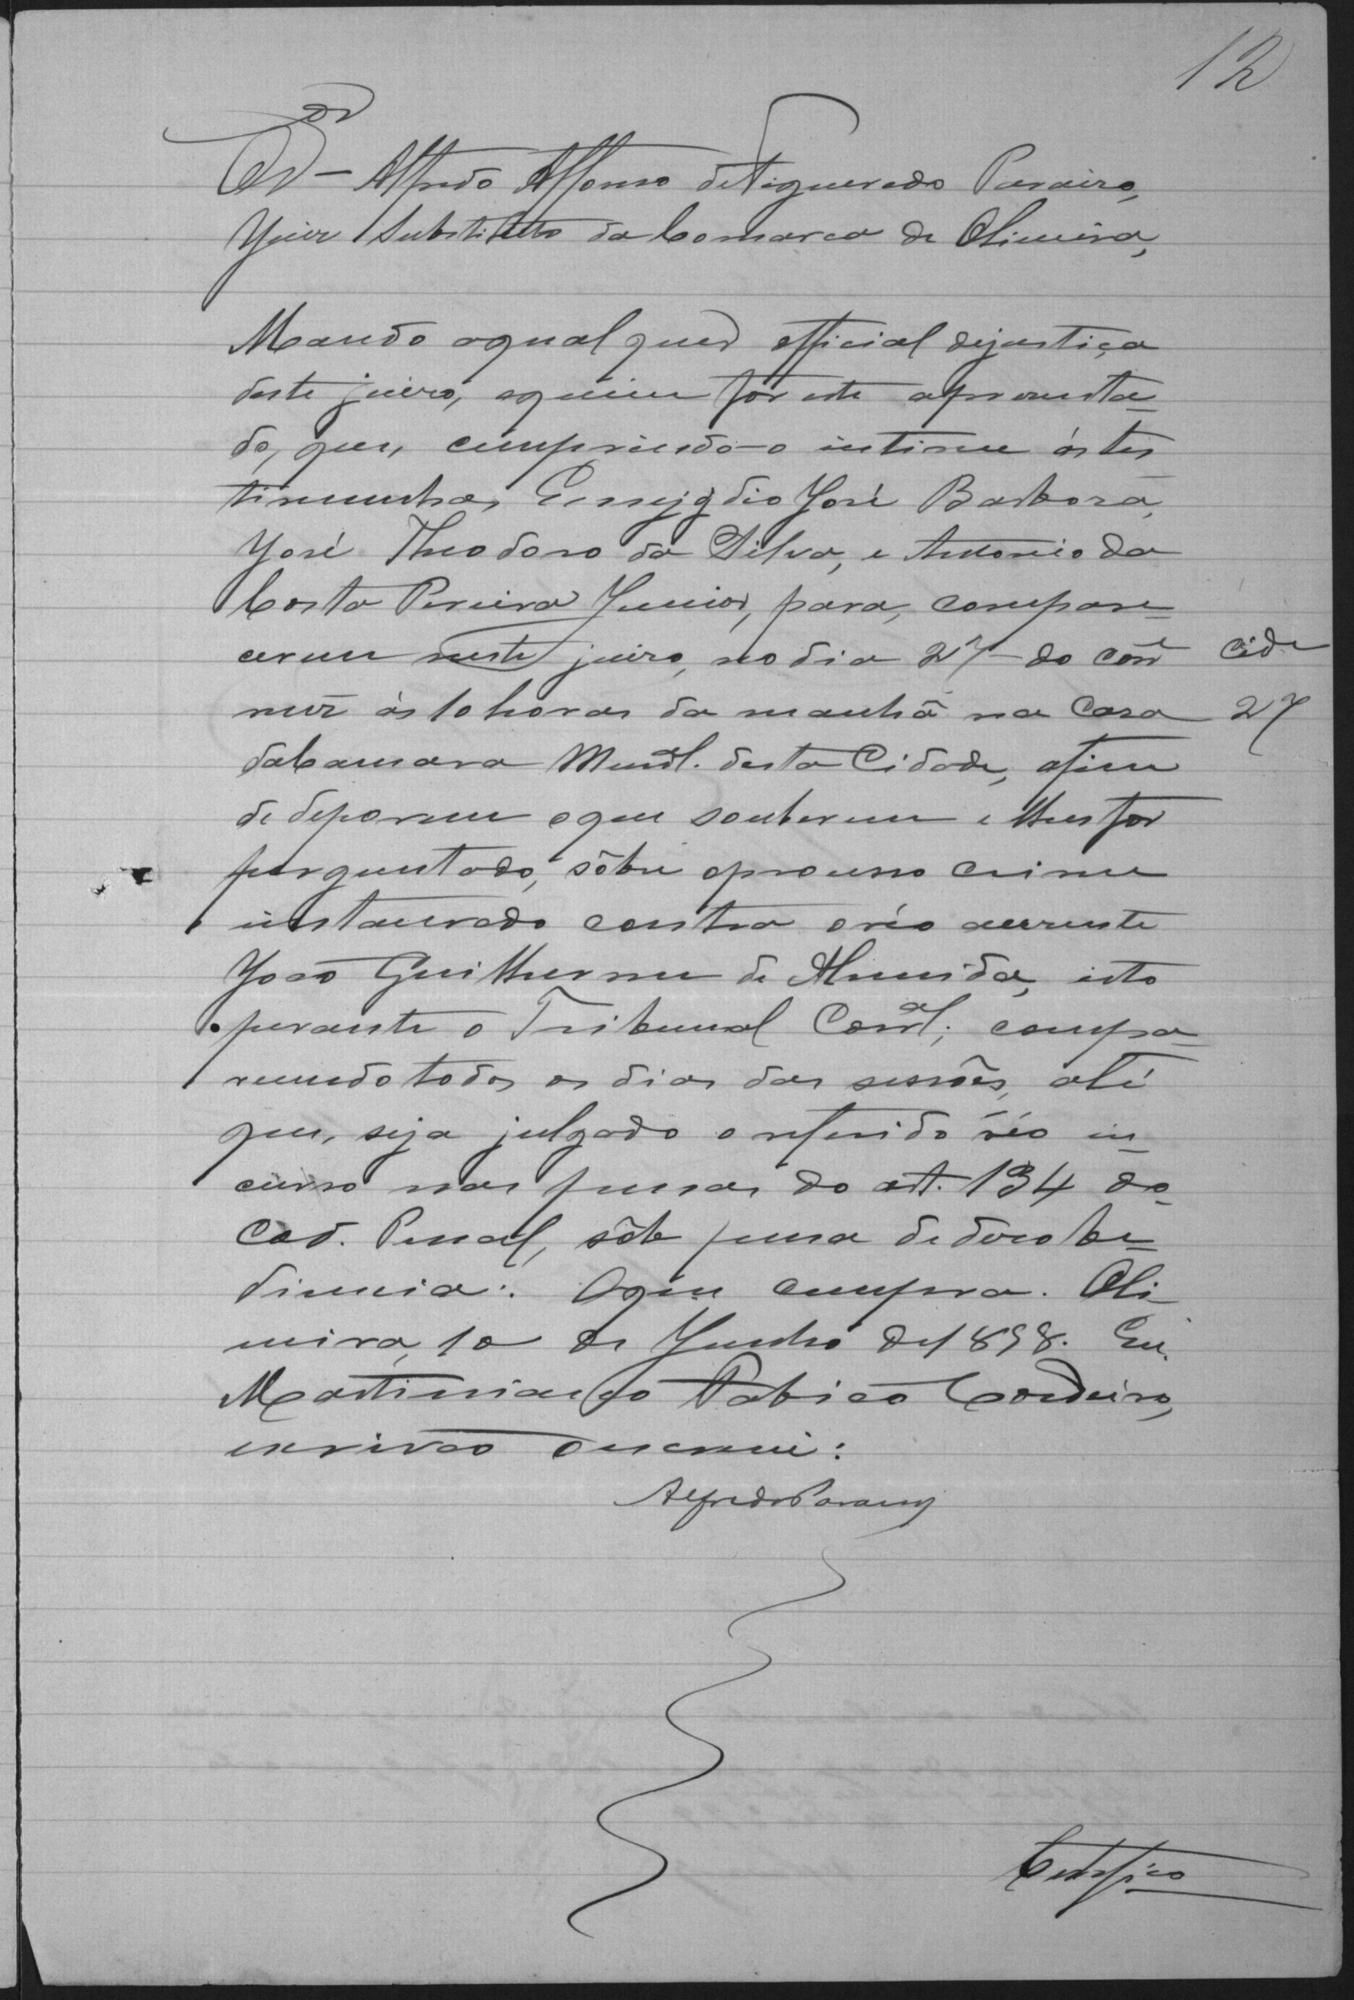 12
Dr - Alfredo Affonso de Figueredo Paraizo,
Juiz Substituto da Comarca de Oliveira,
Mando a qual quer official de justiça
deste juizo, a quem fôr este apresenta=
do, que, cumprindo-o intime ás tes=
timunhas, Emygdio José Barbosa,
José Theodoro da Silva, e Antonio da
Costa Pereira Junior, para, compare=
cerem neste juizo, no dia 27 do côr=
rente ás 10 horas da manhã na Casa
da Camara Munal. desta Cidade, afim
de deporem o que souberem e lhes for
perguntado, sôbre o processo crime
instaurado contra o réo auzente
João Guilherme de Almeida, isto
perante o Tribunal Corral; compa=
recendo todos os dias das sessões, até
que, seja julgado o referido réo in=
curso nas penas do art. 134 do
Cod. Penal, sôb pena de desobe=
diencia:. O que cumpra. Oli
veira, 10 de Junho de 1898. Eu.
Martiniano Fabico Cordeiro,
escrivão o escrevi:
Alfredo Paraizo
Cide
27
Certifico